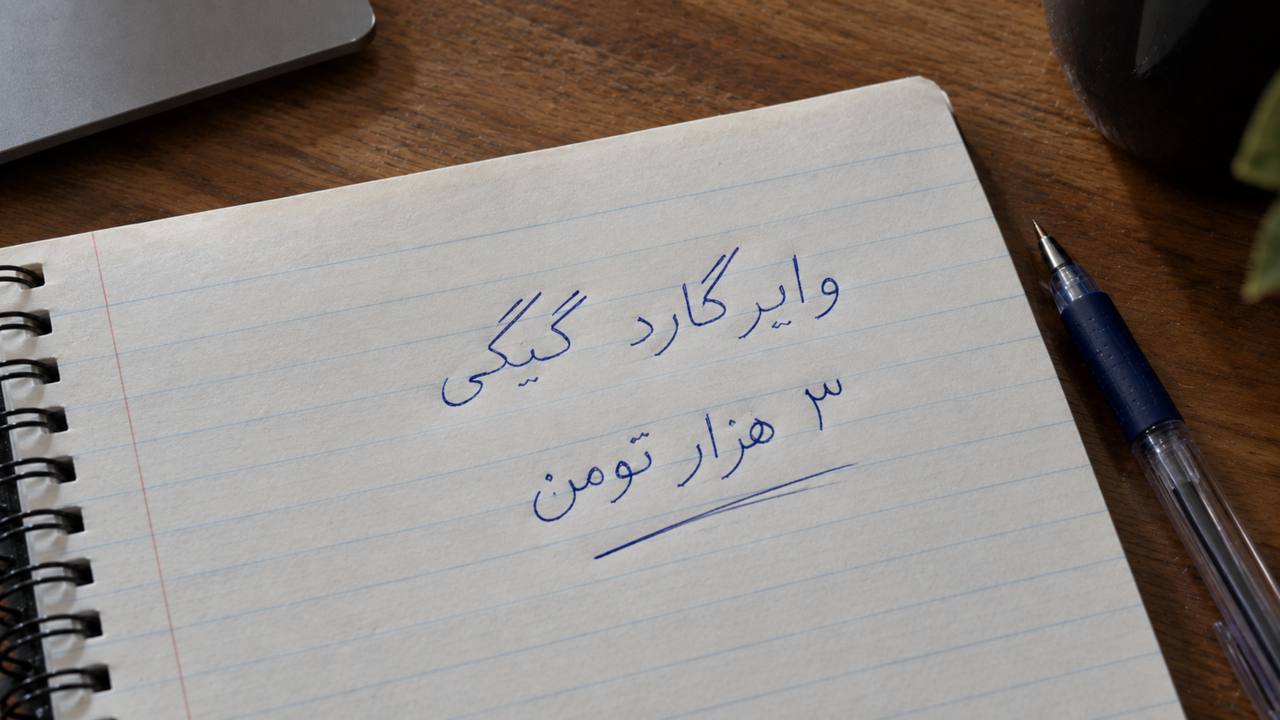 وایرگارد گیگی
۳ هزار تومن